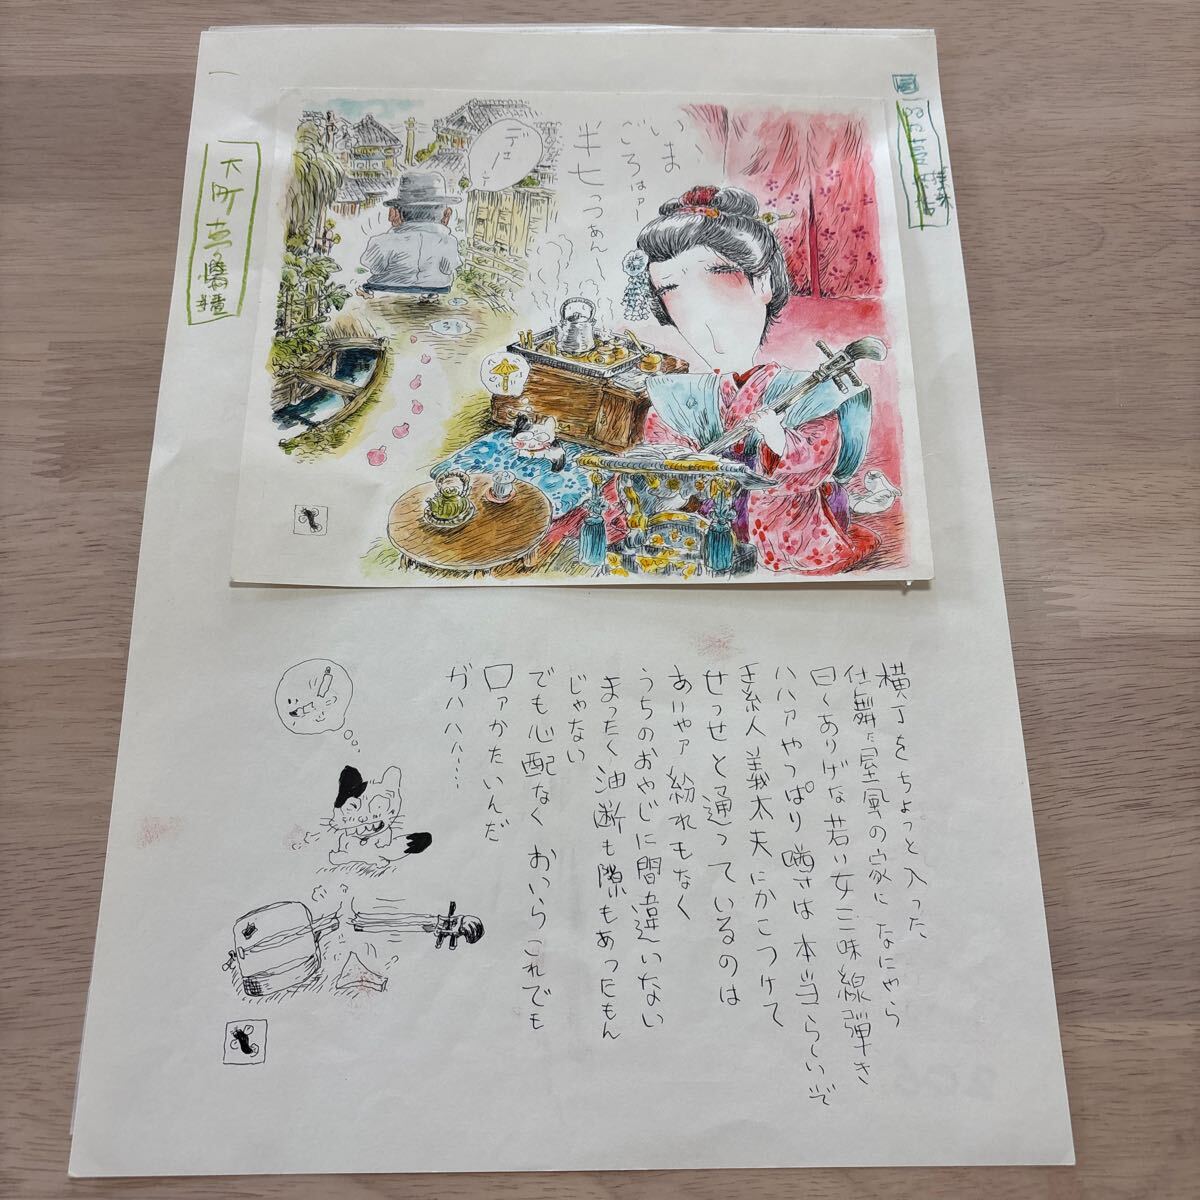 いまごろはァー
半七つぁん〜
デェ〜ン
横丁をちょっと入った
仕舞た屋風の家になにやら
曰くありげな若い女三味線弾き
ハハァやっぱり噂は本当らしいぞ
素人義太夫にかこつけて
せっせと通っているのは
ありゃァ紛れもなく
うちのおやじに間違いない
まったく油断も隙もあったもん
じゃない
でも心配なく おいらこれでも
口ァかたいんだ
ガハハハ……